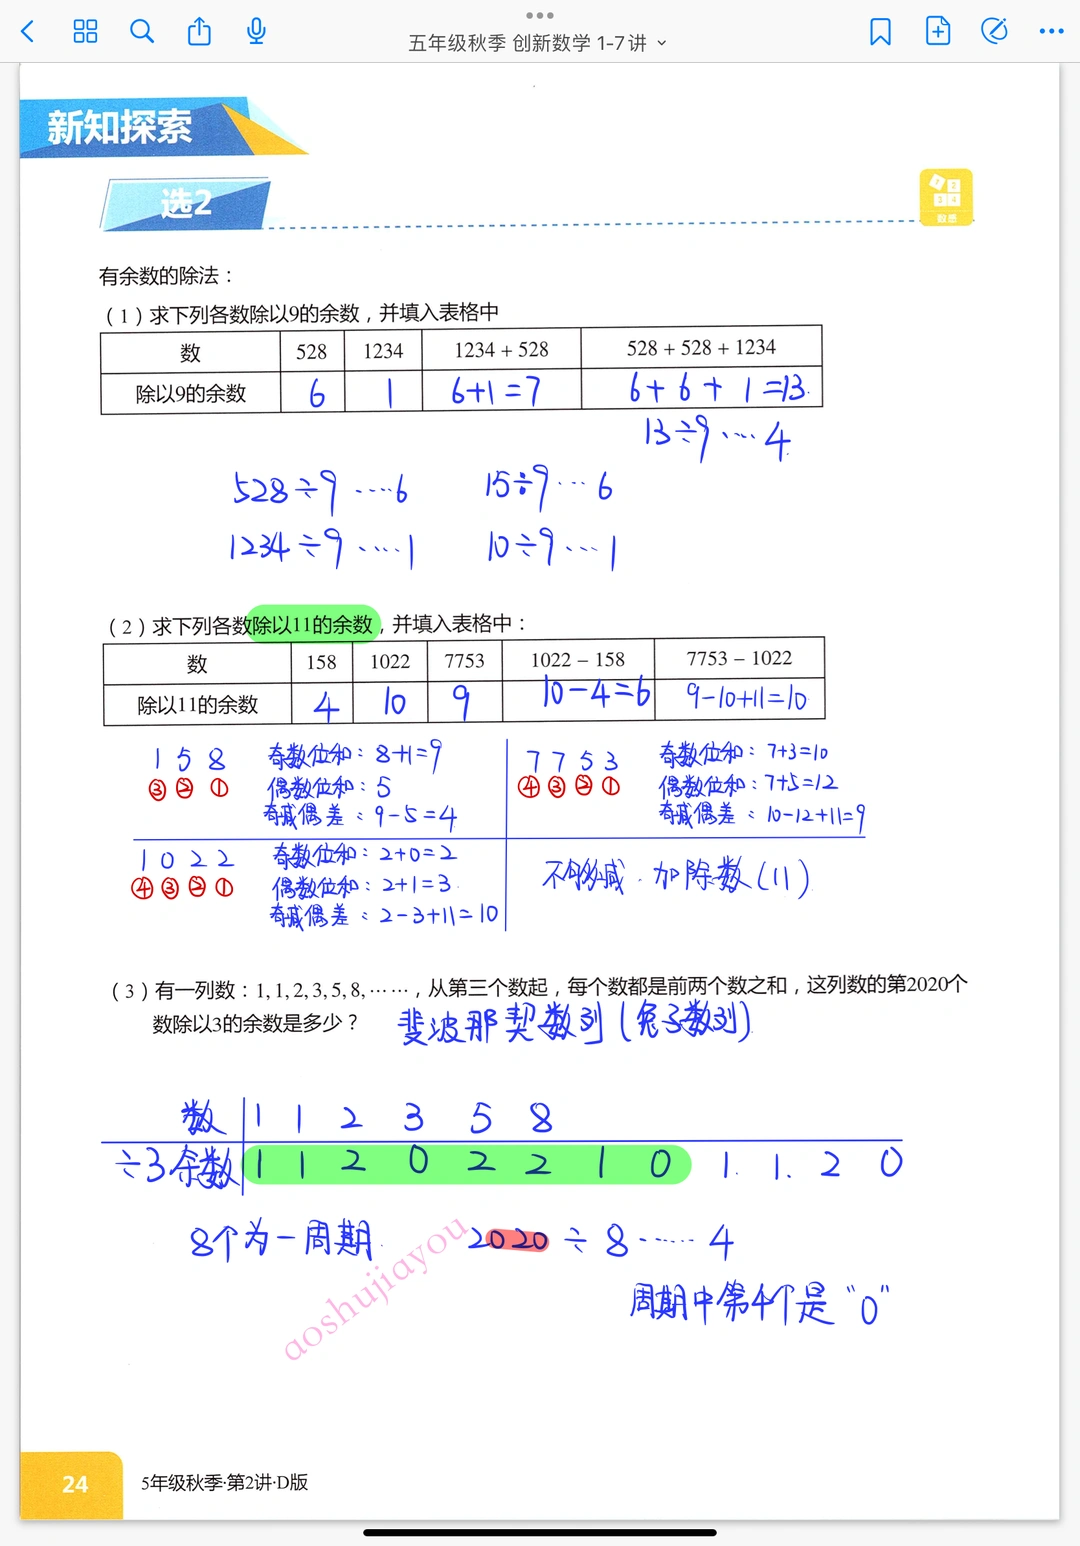 五年级秋季 创新数学 1-7讲
新知探索
选2
数感
有余数的除法：
（1）求下列各数除以9的余数，并填入表格中
数 528 1234 1234 + 528 528 + 528 + 1234
除以9的余数 6 1 6+1=7 6+6+1=13
13÷9……4
528÷9……6 15÷9…6
1234÷9……1 10÷9…1
（2）求下列各数除以11的余数，并填入表格中：
数 158 1022 7753 1022 − 158 7753 − 1022
除以11的余数 4 10 9 10-4=6 9-10+11=10
1 5 8 奇数位和：8+1=9
③ ② ① 偶数位和：5
奇减偶差：9-5=4
7 7 5 3 奇数位和：7+3=10
④ ③ ② ① 偶数位和：7+5=12
奇减偶差：10-12+11=9
1 0 2 2 奇数位和：2+0=2
④ ③ ② ① 偶数位和：2+1=3
奇减偶差：2-3+11=10
不够减，加除数(11)
（3）有一列数：1, 1, 2, 3, 5, 8, ……，从第三个数起，每个数都是前两个数之和，这列数的第2020个
数除以3的余数是多少？
斐波那契数列(兔子数列)
数 1 1 2 3 5 8
÷3余数 1 1 2 0 2 2 1 0 1. 1. 2 0
8个为一周期. 2020÷8……4
周期中第4个是“0”
aoshujiayou
24
5年级秋季·第2讲·D版